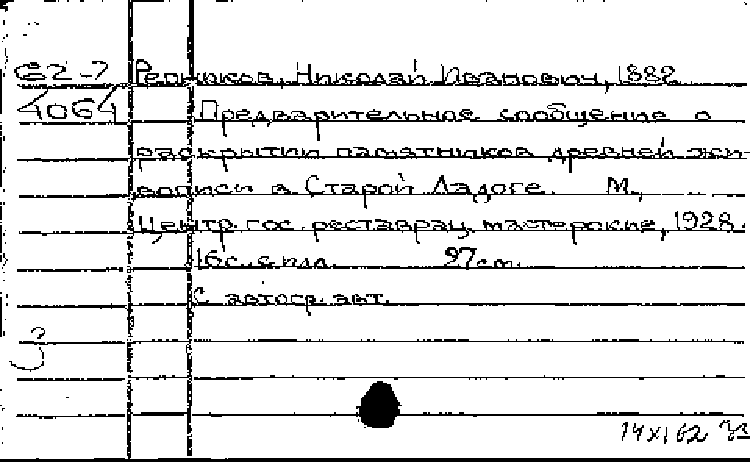 62-7 Репников, Николай Иванович, 1882
4064 Предварительное сообщение о
раскрытии памятников древней жи-
вописи в Старой Ладоге. М.,
Центр. гос. реставрац. мастерские, 1928.
16с. с илл. 27см.
С автогр. авт.
3
14 XI 62